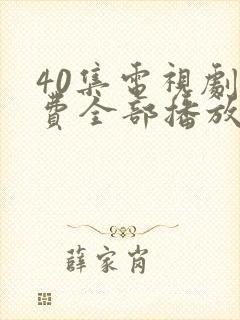 40集電視劇
費全部播放
薛家肖